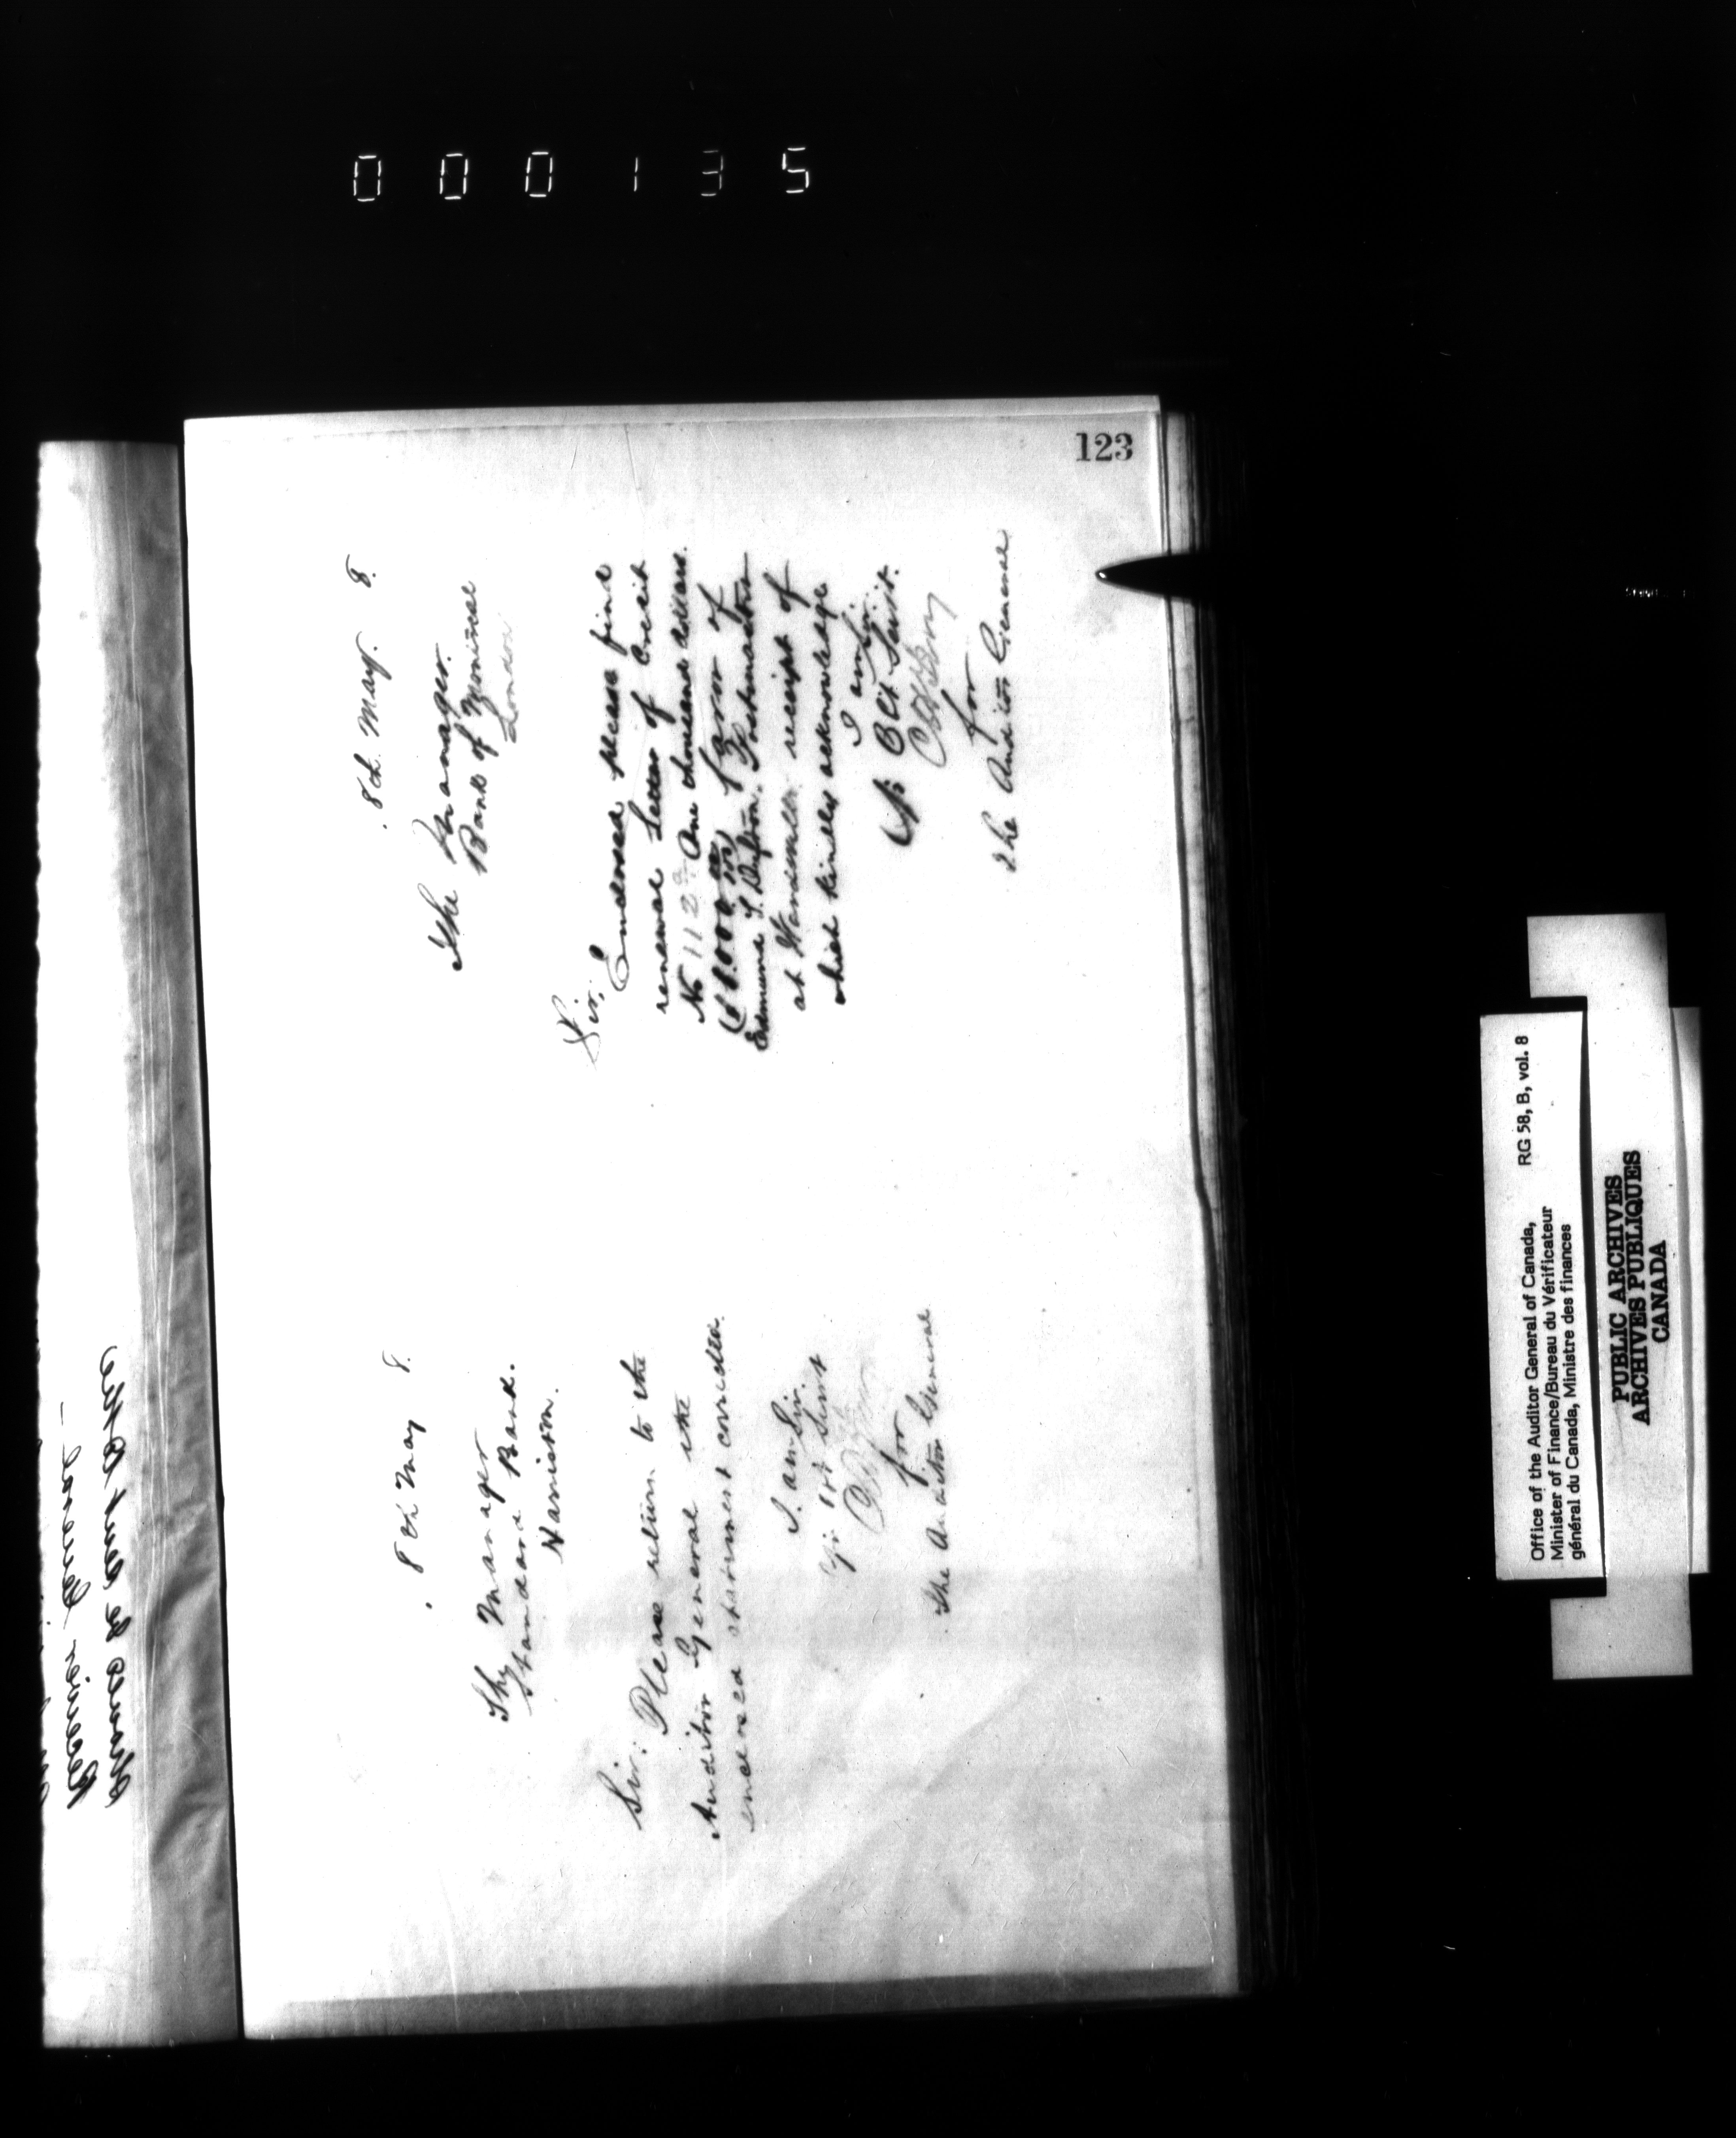 000135
123
8th May 8.
The Manager
Standard Bank.
Harriston.
Sir: Please return to the
Auditor General the
enclosed statement corrected.
I am Sir.
Yr Obt Servt
for
The Auditor General
8th May. 8.
The Manager.
Bank of Montreal
London
Sir,
Enclosed please find
renewal Letter of Credit
No 112 One thousand dollars.
($1.000 00/100) favor of
Edmund S. Postmaster
at receipt of
which kindly acknowledge
I am Sir.
Yr Obt Servt.
for
The Auditor General
Office of the Auditor General of Canada, RG 58, B, vol. 8
Minister of Finance/Bureau du Vérificateur
général du Canada, Ministre des finances
PUBLIC ARCHIVES
ARCHIVES PUBLIQUES
CANADA